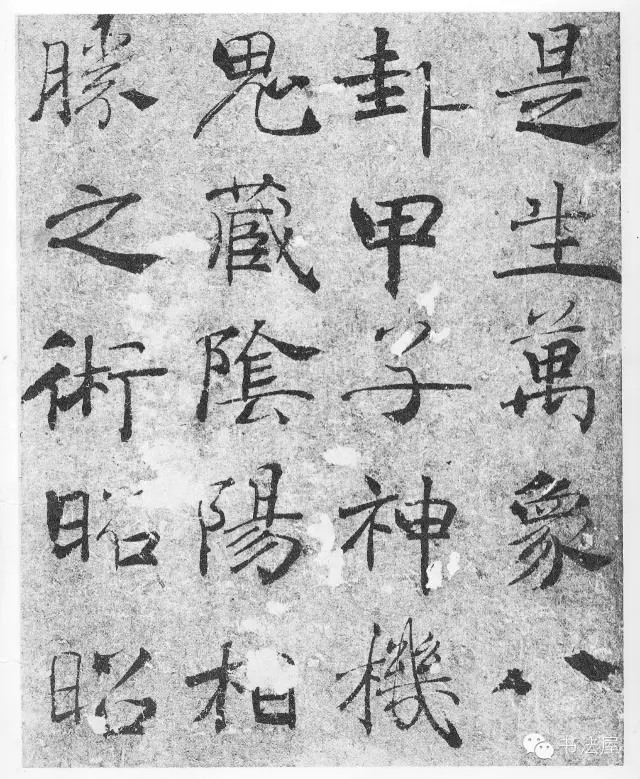 是生萬象八
卦甲子神機
鬼藏陰陽相
勝之術昭昭
书法屋